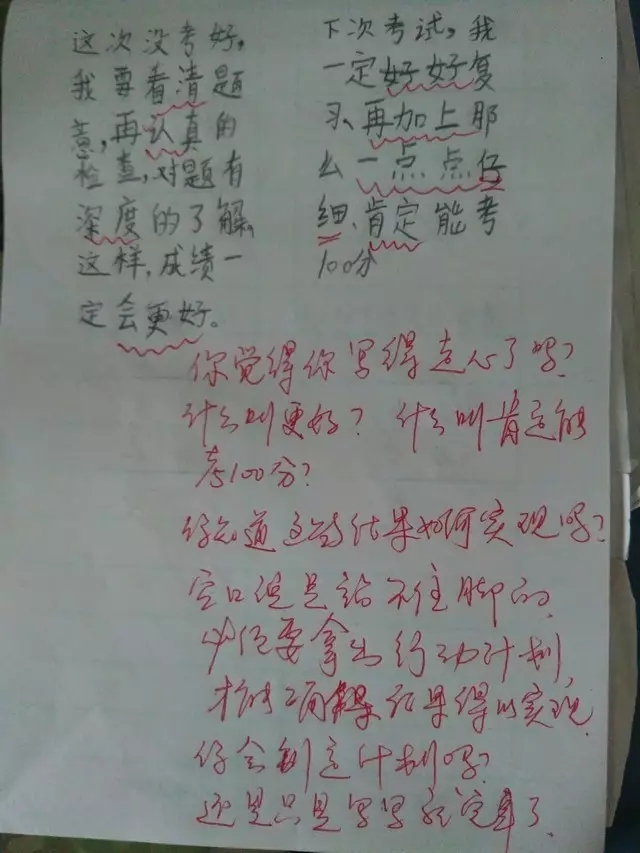 这次没考好,
我要看清题
意,再认真的
检查,对题有
深度的了解,
这样,成绩一
定会更好。
下次考试,我
一定好好复
习、再加上那
么一点点仔
细、肯定能考
100分
你觉得你写得走心了吗?
什么叫更好? 什么叫肯定能
考100分?
你知道这些结果如何实现吗?
空口但是站不住脚的
必须要拿出行动计划,
才能确保结果得以实现
你会制定计划吗?
还是只是写写就完事了.